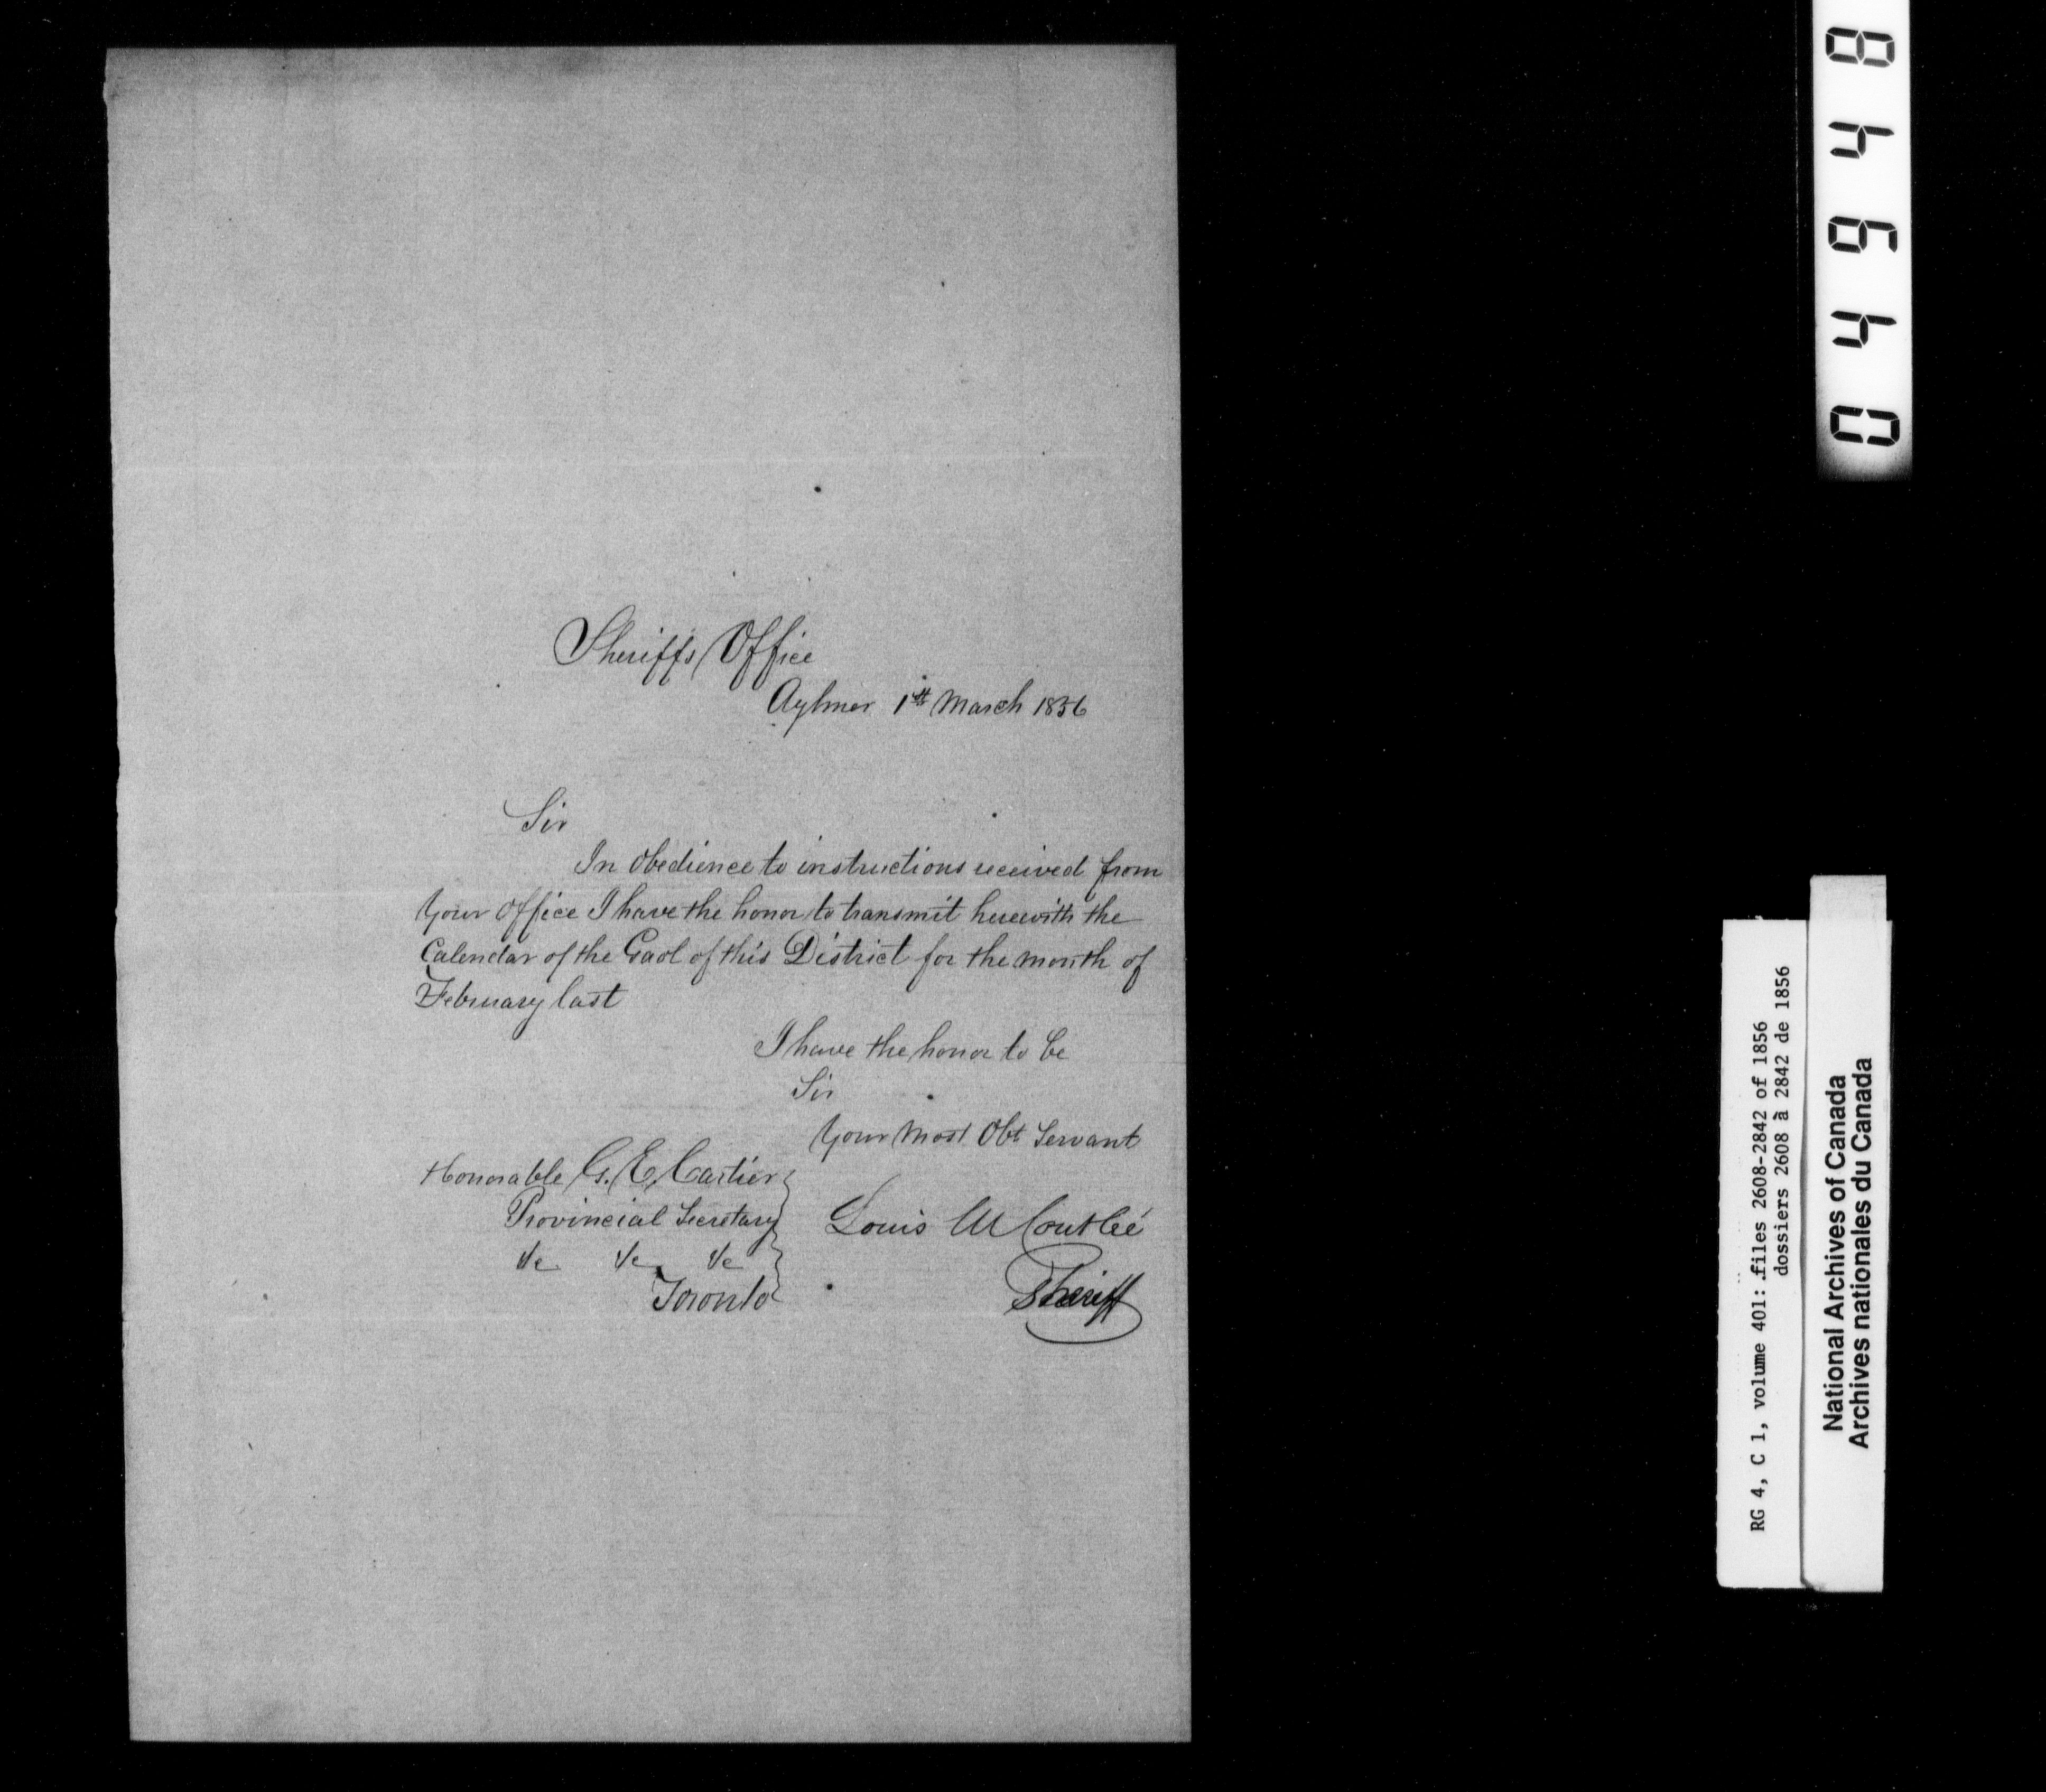 Sheriffs Office
Aylmer 1st March 1856
Sir
In Obedience to instructions received from
Your Office I have the honor to transmit herewith the
Calendar of the Gaol of this District for the month of
February last
I have the honor to be
Sir
Your Most Obt Servant
Honorable G. E. Cartier
Provincial Secretary
&c &c &c
Toronto
Louis M Coutlée
Sheriff
04948
RG 4, C 1, volume 401: files 2608-2842 of 1856
dossiers 2608 à 2842 de 1856
National Archives of Canada
Archives nationales du Canada